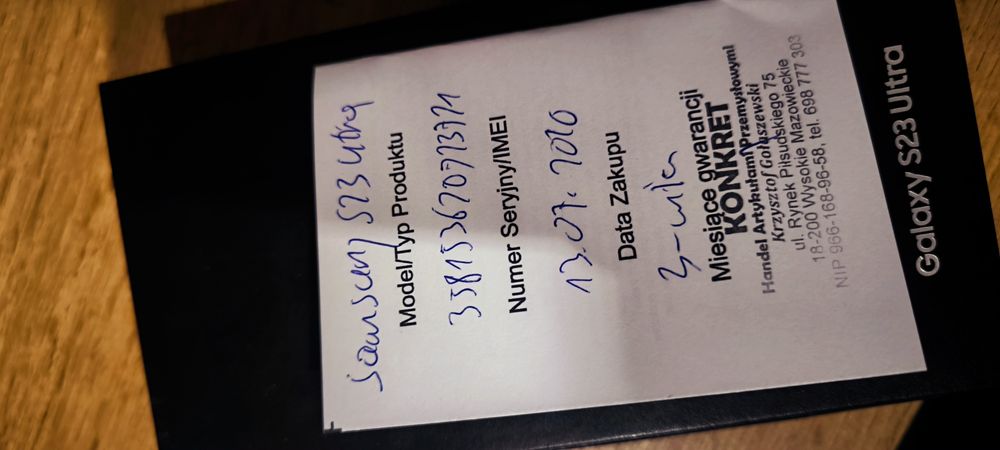 Samsung S23 Ultra
Model/Typ Produktu
Numer Seryjny/IMEI
13.07.2020
Data Zakupu
3-
Miesiące gwarancji
KONKRET
Handel Artykułami Przemysłowymi
Krzysztof Gołaszewski
ul. Rynek Piłsudskiego 75
18-200 Wysokie Mazowieckie
NIP 966-168-96-58, tel. 698 777 303
Galaxy S23 Ultra